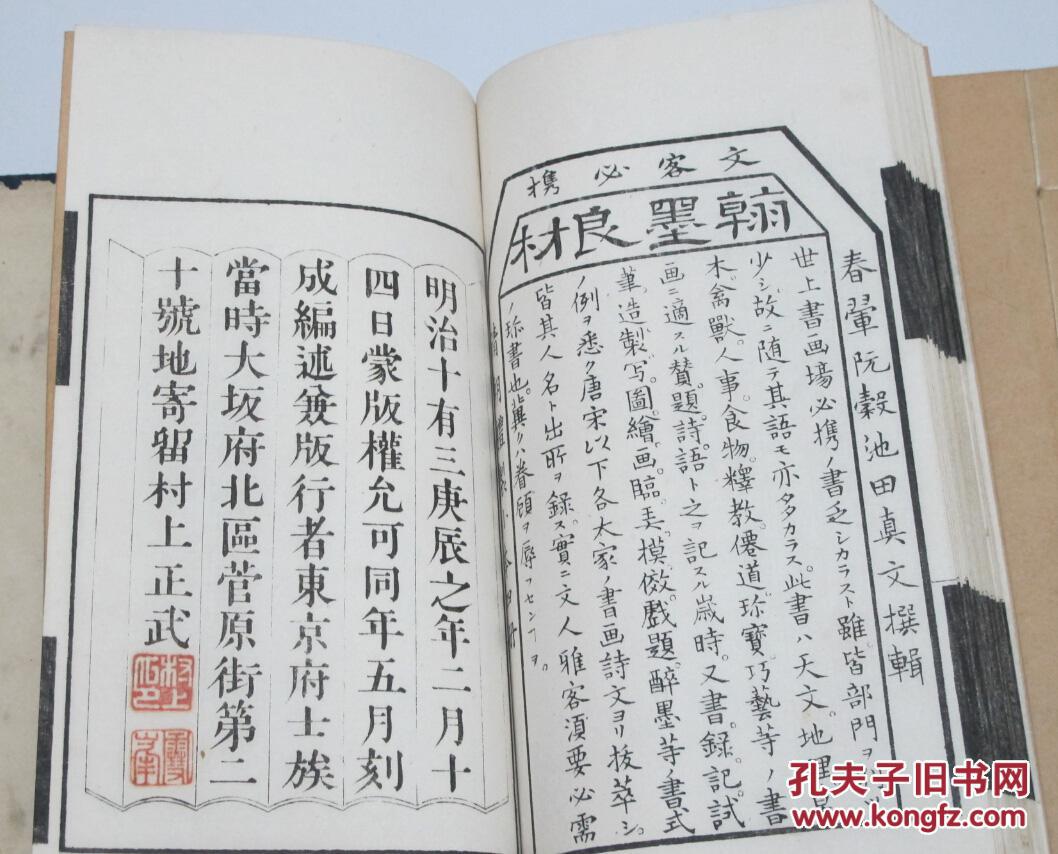 文客必携
翰墨良材
春翬阮毅池田真文撰輯
世上書画場必携ノ書乏シカラスト雖皆部門ヲ
少シ故ニ随テ其語モ亦タタカラス此書ハ天文。地理。
木。禽獸。人事。食物。釋教。僊道。珎寶。巧藝等ノ書
画ニ適スル贊。題。詩。語ト之ヲ記スル歳時。又書。録。記。試
筆。造。製。写。圖。繪。画。臨。模。倣。戲題。醉墨等ノ書式
ノ例ヲ悉ク唐宋以下各大家ノ書画詩文ヨリ拔萃シ。
皆其人名ト出所ヲ録ス實ニ文人雅客須要必需
ノ珎書也。冀クハ眷顧ヲ辱フセンヿヲ。
明治十有三庚辰之年二月十
四日蒙版權允可同年五月刻
成編述兼版行者東京府士族
當時大坂府北區菅原街第二
十號地寄留村上正武
村上
孔夫子旧书网
www.kongfz.com